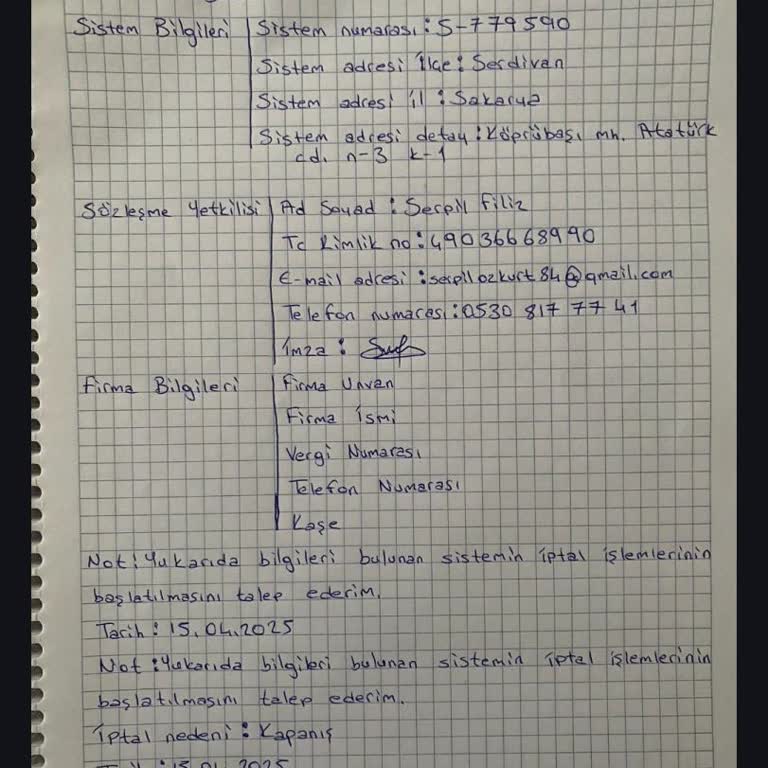 Sistem Bilgileri | Sistem numarası : S-779590
Sistem adresi İlçe : Serdivan
Sistem adresi il : Sakarya
Sistem adresi detay : Köprübaşı mh. Atatürk
cd. n-3 k-1
Sözleşme Yetkilisi | Ad Soyad : Serpil filiz
Tc Kimlik no : 49036668990
E-mail adresi : serpilozkurt84@gmail.com
Telefon numarası : 0530 817 77 41
İmza :
Firma Bilgileri | Firma Unvan
Firma İsmi
Vergi Numarası
Telefon Numarası
Kaşe
Not : Yukarıda bilgileri bulunan sistemin iptal işlemlerinin
başlatılmasını talep ederim.
Tarih : 15.04.2025
Not : Yukarıda bilgileri bulunan sistemin iptal işlemlerinin
başlatılmasını talep ederim.
İptal nedeni : Kapanış